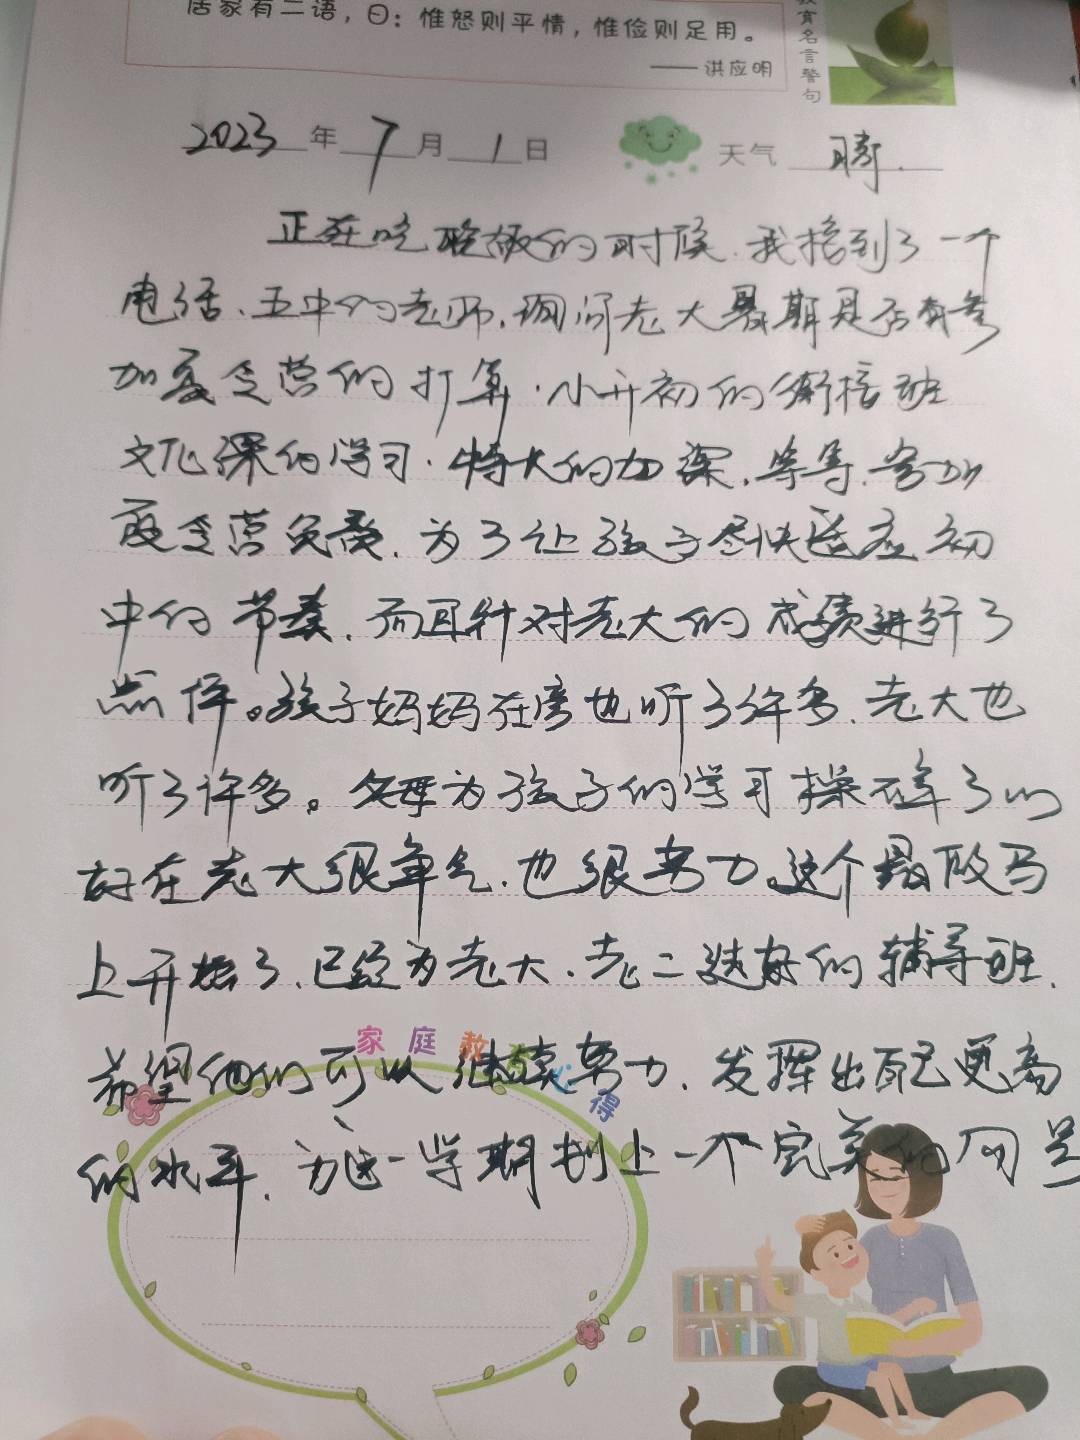 居家有二语，曰：惟恕则平情，惟俭则足用。
——洪应明
教育名言警句
2023年7月1日 天气 晴.
正在吃晚饭的时候.我接到了一个
电话.五中的老师.询问老大暑期是否有参
加夏令营的打算.小升初的衔接班
文化课的学习.特长的加深.等等.参加
夏令营免费.为了让孩子尽快适应初
中的节奏.而且针对老大的成绩进行了
点评。孩子妈妈在旁也听了许多.老大也
听了许多。父母为孩子的学习操碎了心
好在老大很争气.也很努力.这个暑假马
上开始了.已经为老大.老二选好的辅导班.
家庭教育心得
希望他们可以继续努力.发挥出自己更高
的水平.为这一学期划上一个完美的句号